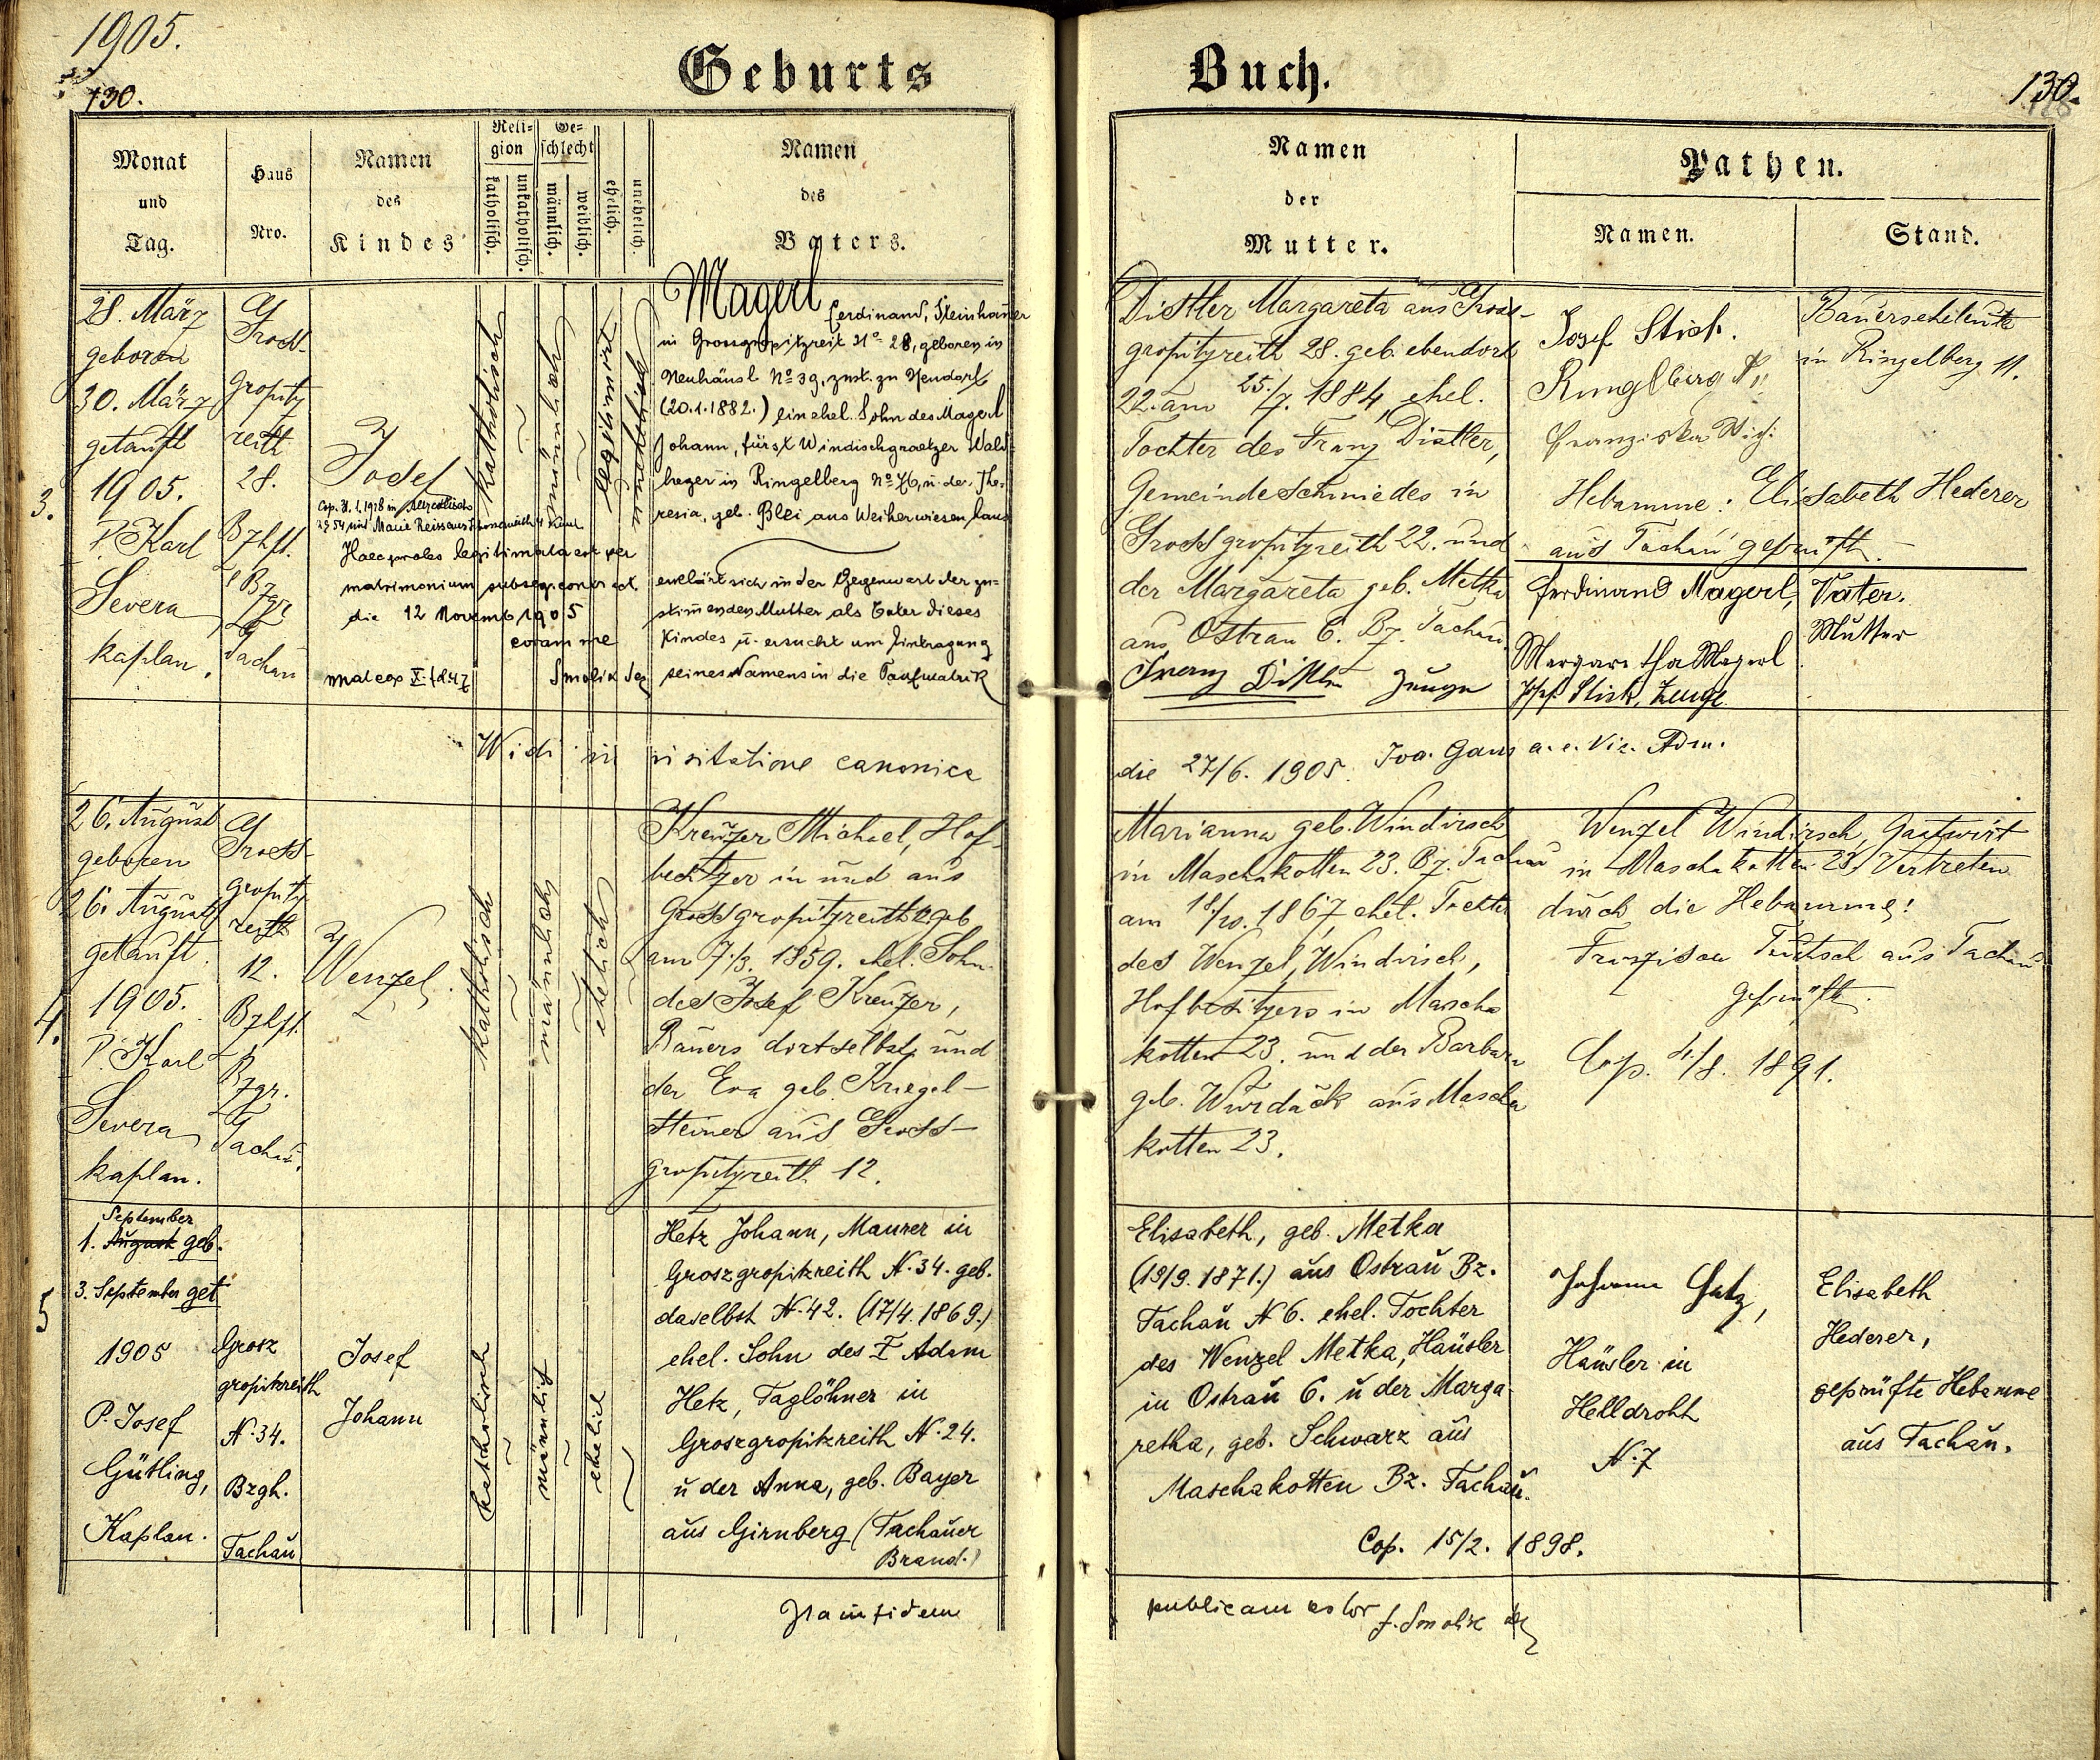 1905.
130.
Geburts
Buch.
130.
Monat
und
Tag.
Haus
Nro.
Namen
des
Kindes
Reli-
gion
katholisch.
unkatholisch.
Ge-
schlecht
männlich.
weiblich.
ehelich.
unehelich.
Namen
des
Vaters.
Namen
der
Mutter.
Pathen.
Namen.
Stand.
3.
28. März
geboren
30. März
getauft
1905.
P. Karl
Severa
kaplan.
Gross-
gropitz
reith
28.
Bzhft.
Bzgr
Tachau
Josef
Cop. 31.1.1928 in
Haec proles legitimata est per
matrimonium subseq.
die 12 Novemb 1905
coram me
Smolik
katholisch
männlich
legitimirt
unehelich
Magerl
Ferdinand, Steinhauer
in Grossgropitzreit No 28, geboren in
Neuhäusl No 39, zust. zu Neudorf
(20.1.1882.) ein ehel. Sohn des Magerl
Johann, fürstl Windischgraetzer Wald-
heger in Ringelberg No, u. der The-
resia, geb. Blei aus Weiherwiesen
erklärt sich in der Gegenwart der zu-
stimenden Mutter als Vater dieses
Kindes u. ersucht um Eintragung
seines Namens in die Taufmatrik
Distler Margareta aus Gross-
gropitzreith 28. geb. ebendort
22. am 25./7. 1884, ehel.
Tochter des Franz Distler,
Gemeindeschmiedes in
Grossgropitzreith 22. und
der Margareta geb. Metka
aus Ostrau 6. Bz. Tachau.
Franz Distler Zeuge
Josef Stick.
Ringlberg
Franziska
Hebamme: Elisabeth Hederer
aus Tachau geprüft.
Ferdinand Magerl,
Margaretha Magerl
Josef Stick, Zeuge
Bauerseheleute
in Ringelberg 11.
Vater.
Mutter
Widi in visitatione canonica
die 27/6. 1905. Joa. Gans a. e. Vic. Adm.
4.
26. August
geboren
26. August
getauft.
1905.
P. Karl
Severa
kaplan.
Gross-
gropitz
reith
12.
Bzhft.
Bzgr.
Tachau.
Wenzel.
katholisch
männlich
ehelich
Kreuzer Michael, Hof-
besitzer in und aus
Grossgropitzreith 12 geb
am 7./3. 1859. ehel. Sohn
des Josef Kreuzer,
Bauers dortselbst und
der Eva geb. Kriegel-
steiner aus Gross-
gropitzreith 12.
Marianna geb. Windirsch
in Maschakotten 23. Bz. Tachau
am 18/10. 1867, ehel. Tochter
des Wenzel Windirsch,
Hofbesitzers in Mascha
kotten 23. und der Barbara
geb. Wurdack aus Mascha
kotten 23.
Wenzel Windirsch, Gastwirt
in Maschakotten 23. Vertreten
durch die Hebamme!
Tachau
geprüft.
Cop. 4/8. 1891.
5
September
1. August geb.
3. September get
1905
P. Josef
Gütling,
Kaplan.
Grosz
gropitzreith
N. 34.
Bzgh.
Tachau
Josef
Johann
katholisch
männlich
ehelich
Hetz Johann, Maurer in
Groszgropitzreith N. 34. geb.
daselbst N. 42. (17/4. 1869.)
ehel. Sohn des † Adam
Hetz, Taglöhner in
Groszgropitzreith N. 24.
u der Anna, geb. Bayer
aus Girnberg (Tachauer
Brand.)
Elisabeth, geb. Metka
(19/9. 1871.) aus Ostrau Bz.
Tachau N 6. ehel. Tochter
des Wenzel Metka, Häusler
in Ostrau 6. u der Marga-
retha, geb. Schwarz aus
Maschakotten Bz. Tachau.
Cop. 15/2. 1898.
Johann Hetz,
Häusler in
Helldroht
N. 7
Elisabeth
Hederer,
geprüfte Hebamme
aus Tachau.
In fidem
publicam
f. Smolik